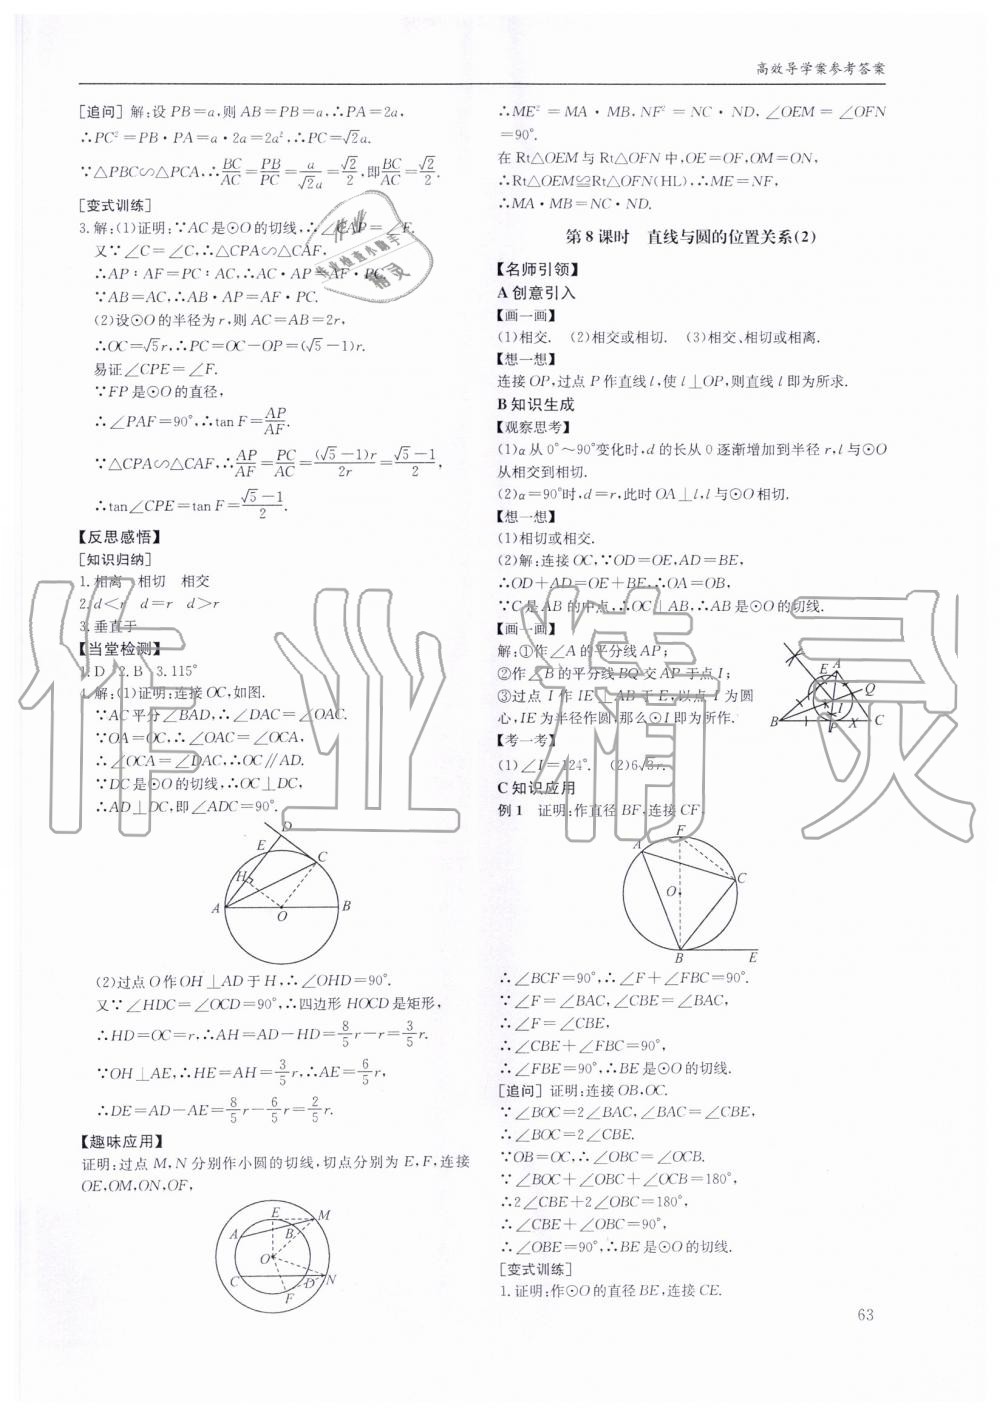 高效导学案参考答案
[追问] 解:设 PB=a,则 AB=PB=a,∴PA=2a,
∴PC²=PB·PA=a·2a=2a²,∴PC=√2a.
∵△PBC∽△PCA,∴BC/AC=PB/PC=a/√2a=√2/2,即BC/AC=√2/2.
[变式训练]
3.解:(1)证明:∵AC是⊙O的切线,∴∠CAP=∠F.
又∵∠C=∠C,∴△CPA∽△CAF,
∴AP∶AF=PC∶AC,∴AC·AP=AF·PC.
∵AB=AC,∴AB·AP=AF·PC.
(2)设⊙O的半径为r,则 AC=AB=2r,
∴OC=√5r,∴PC=OC-OP=(√5-1)r.
易证∠CPE=∠F.
∵FP是⊙O的直径,
∴∠PAF=90°,∴tan F=AP/AF.
∵△CPA∽△CAF,∴AP/AF=PC/AC=(√5-1)r/2r=√5-1/2,
∴tan∠CPE=tan F=√5-1/2.
【反思感悟】
[知识归纳]
1.相离 相切 相交
2.d<r d=r d>r
3.垂直于
【当堂检测】
1.D 2.B 3.115°
4.解:(1)证明:连接OC,如图.
∵AC平分∠BAD,∴∠DAC=∠OAC.
∵OA=OC,∴∠OAC=∠OCA,
∴∠OCA=∠DAC,∴OC∥AD.
∵DC是⊙O的切线,∴OC⊥DC,
∴AD⊥DC,即∠ADC=90°.
D
E
C
H
A
O
B
(2)过点O作OH⊥AD于H,∴∠OHD=90°.
又∵∠HDC=∠OCD=90°,∴四边形HOCD是矩形,
∴HD=OC=r,∴AH=AD-HD=8/5r-r=3/5r.
∵OH⊥AE,∴HE=AH=3/5r,∴AE=6/5r,
∴DE=AD-AE=8/5r-6/5r=2/5r.
【趣味应用】
证明:过点M,N分别作小圆的切线,切点分别为E,F,连接
OE,OM,ON,OF,
E
M
A
B
O
C
D
N
F
∴ME²=MA·MB,NF²=NC·ND,∠OEM=∠OFN
=90°.
在Rt△OEM与Rt△OFN中,OE=OF,OM=ON,
∴Rt△OEM≌Rt△OFN(HL),∴ME=NF,
∴MA·MB=NC·ND.
第8课时 直线与圆的位置关系(2)
【名师引领】
A 创意引入
【画一画】
(1)相交. (2)相交或相切. (3)相交、相切或相离.
【想一想】
连接OP,过点P作直线l,使l⊥OP,则直线l即为所求.
B 知识生成
【观察思考】
(1)α从0°～90°变化时,d的长从0逐渐增加到半径r,l与⊙O
从相交到相切.
(2)α=90°时,d=r,此时OA⊥l,l与⊙O相切.
【想一想】
(1)相切或相交.
(2)解:连接OC,∵OD=OE,AD=BE,
∴OD+AD=OE+BE,∴OA=OB,
∵C是AB的中点,∴OC⊥AB,∴AB是⊙O的切线.
【画一画】
解:①作∠A的平分线AP;
②作∠B的平分线BQ交AP于点I;
③过点I作IE⊥AB于E,以点I为圆
心,IE为半径作圆,那么⊙I即为所作.
E
A
Q
I
B
P
C
【考一考】
(1)∠I=124°. (2)6√3r.
C 知识应用
例1 证明:作直径BF,连接CF,
F
A
C
O
B
E
∴∠BCF=90°,∴∠F+∠FBC=90°.
∵∠F=∠BAC,∠CBE=∠BAC,
∴∠F=∠CBE,
∴∠CBE+∠FBC=90°,
∴∠FBE=90°,∴BE是⊙O的切线.
[追问] 证明:连接OB,OC.
∵∠BOC=2∠BAC,∠BAC=∠CBE,
∴∠BOC=2∠CBE.
∵OB=OC,∴∠OBC=∠OCB.
∵∠BOC+∠OBC+∠OCB=180°,
∴2∠CBE+2∠OBC=180°,
∴∠CBE+∠OBC=90°,
∴∠OBE=90°,∴BE是⊙O的切线.
[变式训练]
1.证明:作⊙O的直径BE,连接CE.
63
作业精灵
作业
作业检查小助手
精灵